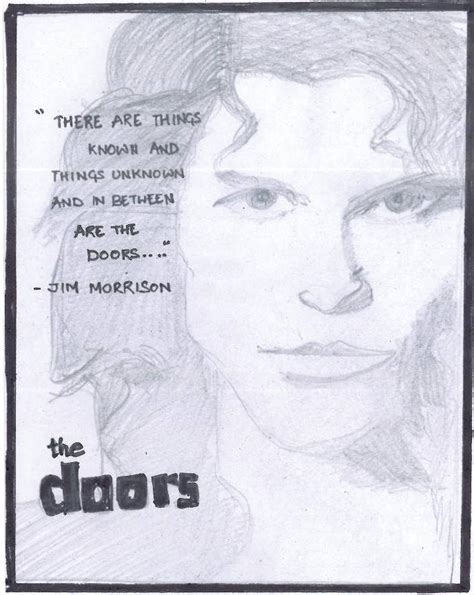 "THERE ARE THINGS
KNOWN AND
THINGS UNKNOWN
AND IN BETWEEN
ARE THE
DOORS...."
- JIM MORRISON
the
doors